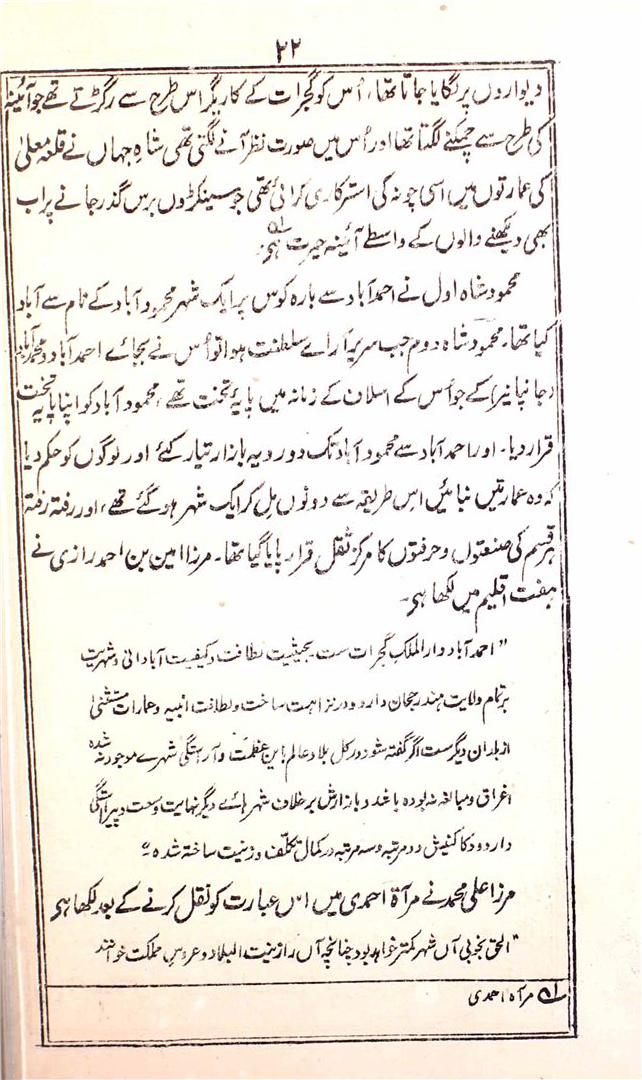 ۲۲
دیواروں پر لگایا جاتا تھا، اُس کو گجرات کے کاریگر اس طرح سے رگڑتے تھے جو آئینہ
کی طرح سے چمکنے لگتا تھا اور اُس میں صورت نظر آنے لگتی تھی شاہ جہاں نے قلعہ معلیٰ
کی عمارتوں میں اسی چونہ کی استرکاری کرائی تھی جو سینکڑوں برس گذر جانے پر اب
بھی دیکھنے والوں کے واسطے آئینہ حیرت ہی۔ لہ
محمود شاہ اول نے احمد آباد سے بارہ کوس پر ایک شہر محمود آباد کے نام سے آباد
کیا تھا۔ محمود شاہ دوم جب سریر آرائے سلطنت ہوا تو اُس نے بجائے احمد آباد و محمد آباد
(جانپانیر) کے جو اُس کے اسلان کے زمانہ میں پایۂ تخت تھے، محمود آباد کو اپنا پایۂ تخت
قرار دیا۔ اور احمد آباد سے محمود آباد تک دو رویہ بازار تیار کئے اور لوگوں کو حکم دیا
کہ وہ عمارتیں بنائیں اس طریقہ سے دونوں مل کر ایک شہر ہو گئے تھے، اور رفتہ رفتہ
ہر قسم کی صنعتوں و حرفتوں کا مرکز ثقل قرار پایا گیا تھا۔ مرزا امین بن احمد رازی نے
ہفت اقلیم میں لکھا ہی۔
"احمد آباد دار الملک گجرات ست بحیثیت لطافت و کیفیت آبادانی و شہریت
بر تمام ولایت ہند رجحان دارد و در نزاہت ساخت و لطافت ابنیہ و عمارات مستثنیٰ
از بلدان دیگر ست اگر گفتہ شود در کل بلاد عالم باین عظمت و آراستگی شہرے موجود نہ شدہ
اغراق و مبالغہ نہ بودہ باشد و بازارش بر خلاف شہر ہائے دیگر نہایت وسعت و پیراستگی
دارد و دکاکینش دو مرتبہ و سہ مرتبہ در کمال تکلف و زینت ساختہ شدہ"
مرزا علی محمد نے مرآۃ احمدی میں اس عبارت کو نقل کرنے کے بعد لکھا ہی
"الحق بخوبی آں شہر کمتر خواہد بود چنانچہ آں را زینت البلاد و عروس مملکت خوانند
لہ مرآہ احمدی